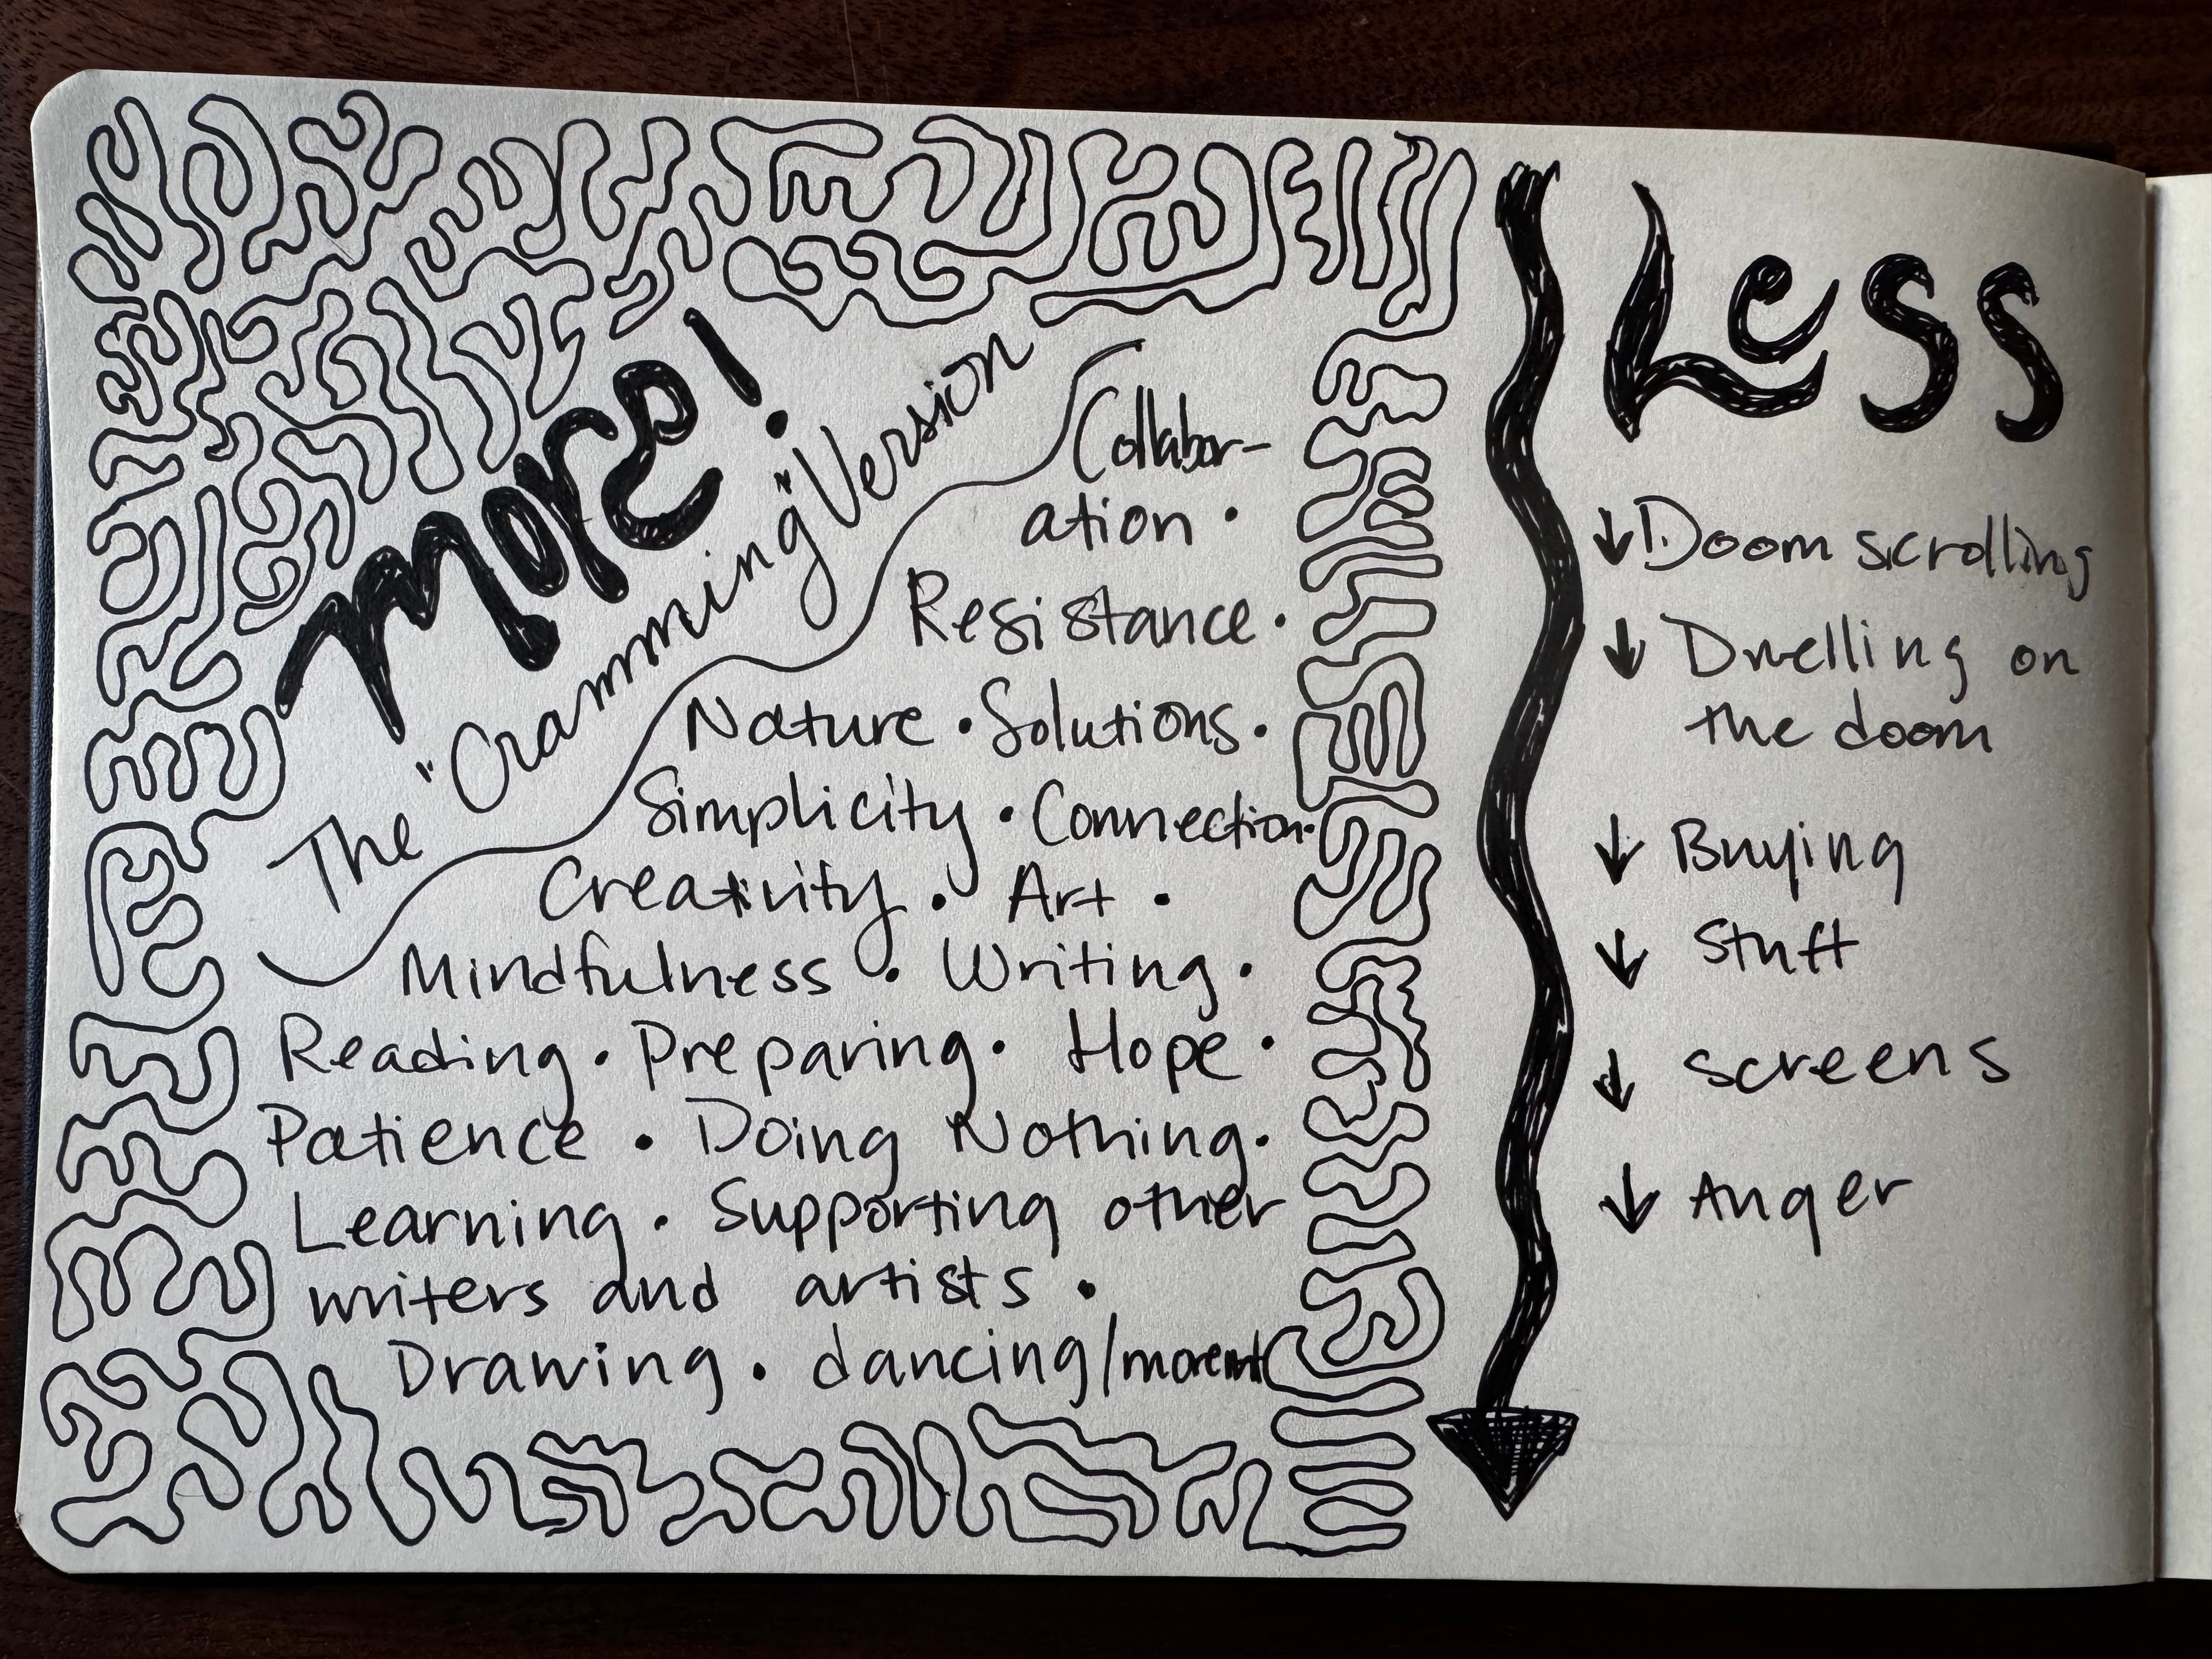 more!
The "Cramming" Version
Collabor-
ation •
Resistance •
Nature • Solutions •
Simplicity • Connection •
Creativity • Art •
Mindfulness • Writing •
Reading • Preparing • Hope •
Patience • Doing Nothing •
Learning • Supporting other
writers and artists •
Drawing • dancing/movement
Less
↓ Doom scrolling
↓ Dwelling on
the doom
↓ Buying
↓ Stuff
↓ Screens
↓ Anger